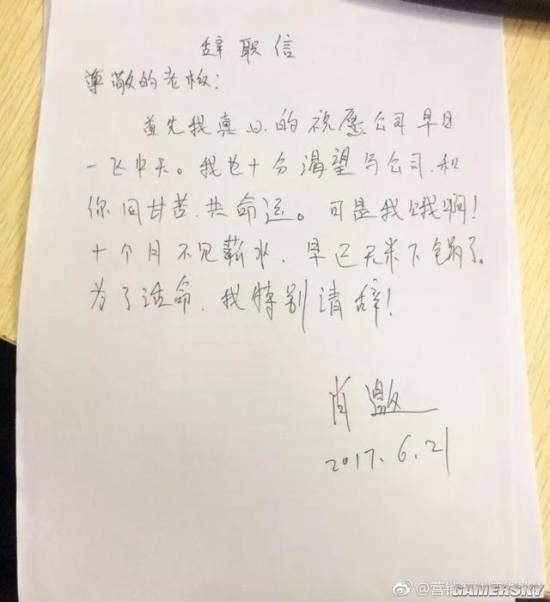 辞职信
尊敬的老板:
首先我真心的祝愿公司早日
一飞冲天。我也十分渴望与公司、和
你同甘苦、共命运。可是我饿啊!
十个月不见薪水、早已无米下锅了。
为了活命、我特别请辞!
肖
2017.6.21
@营
GAMERSKY